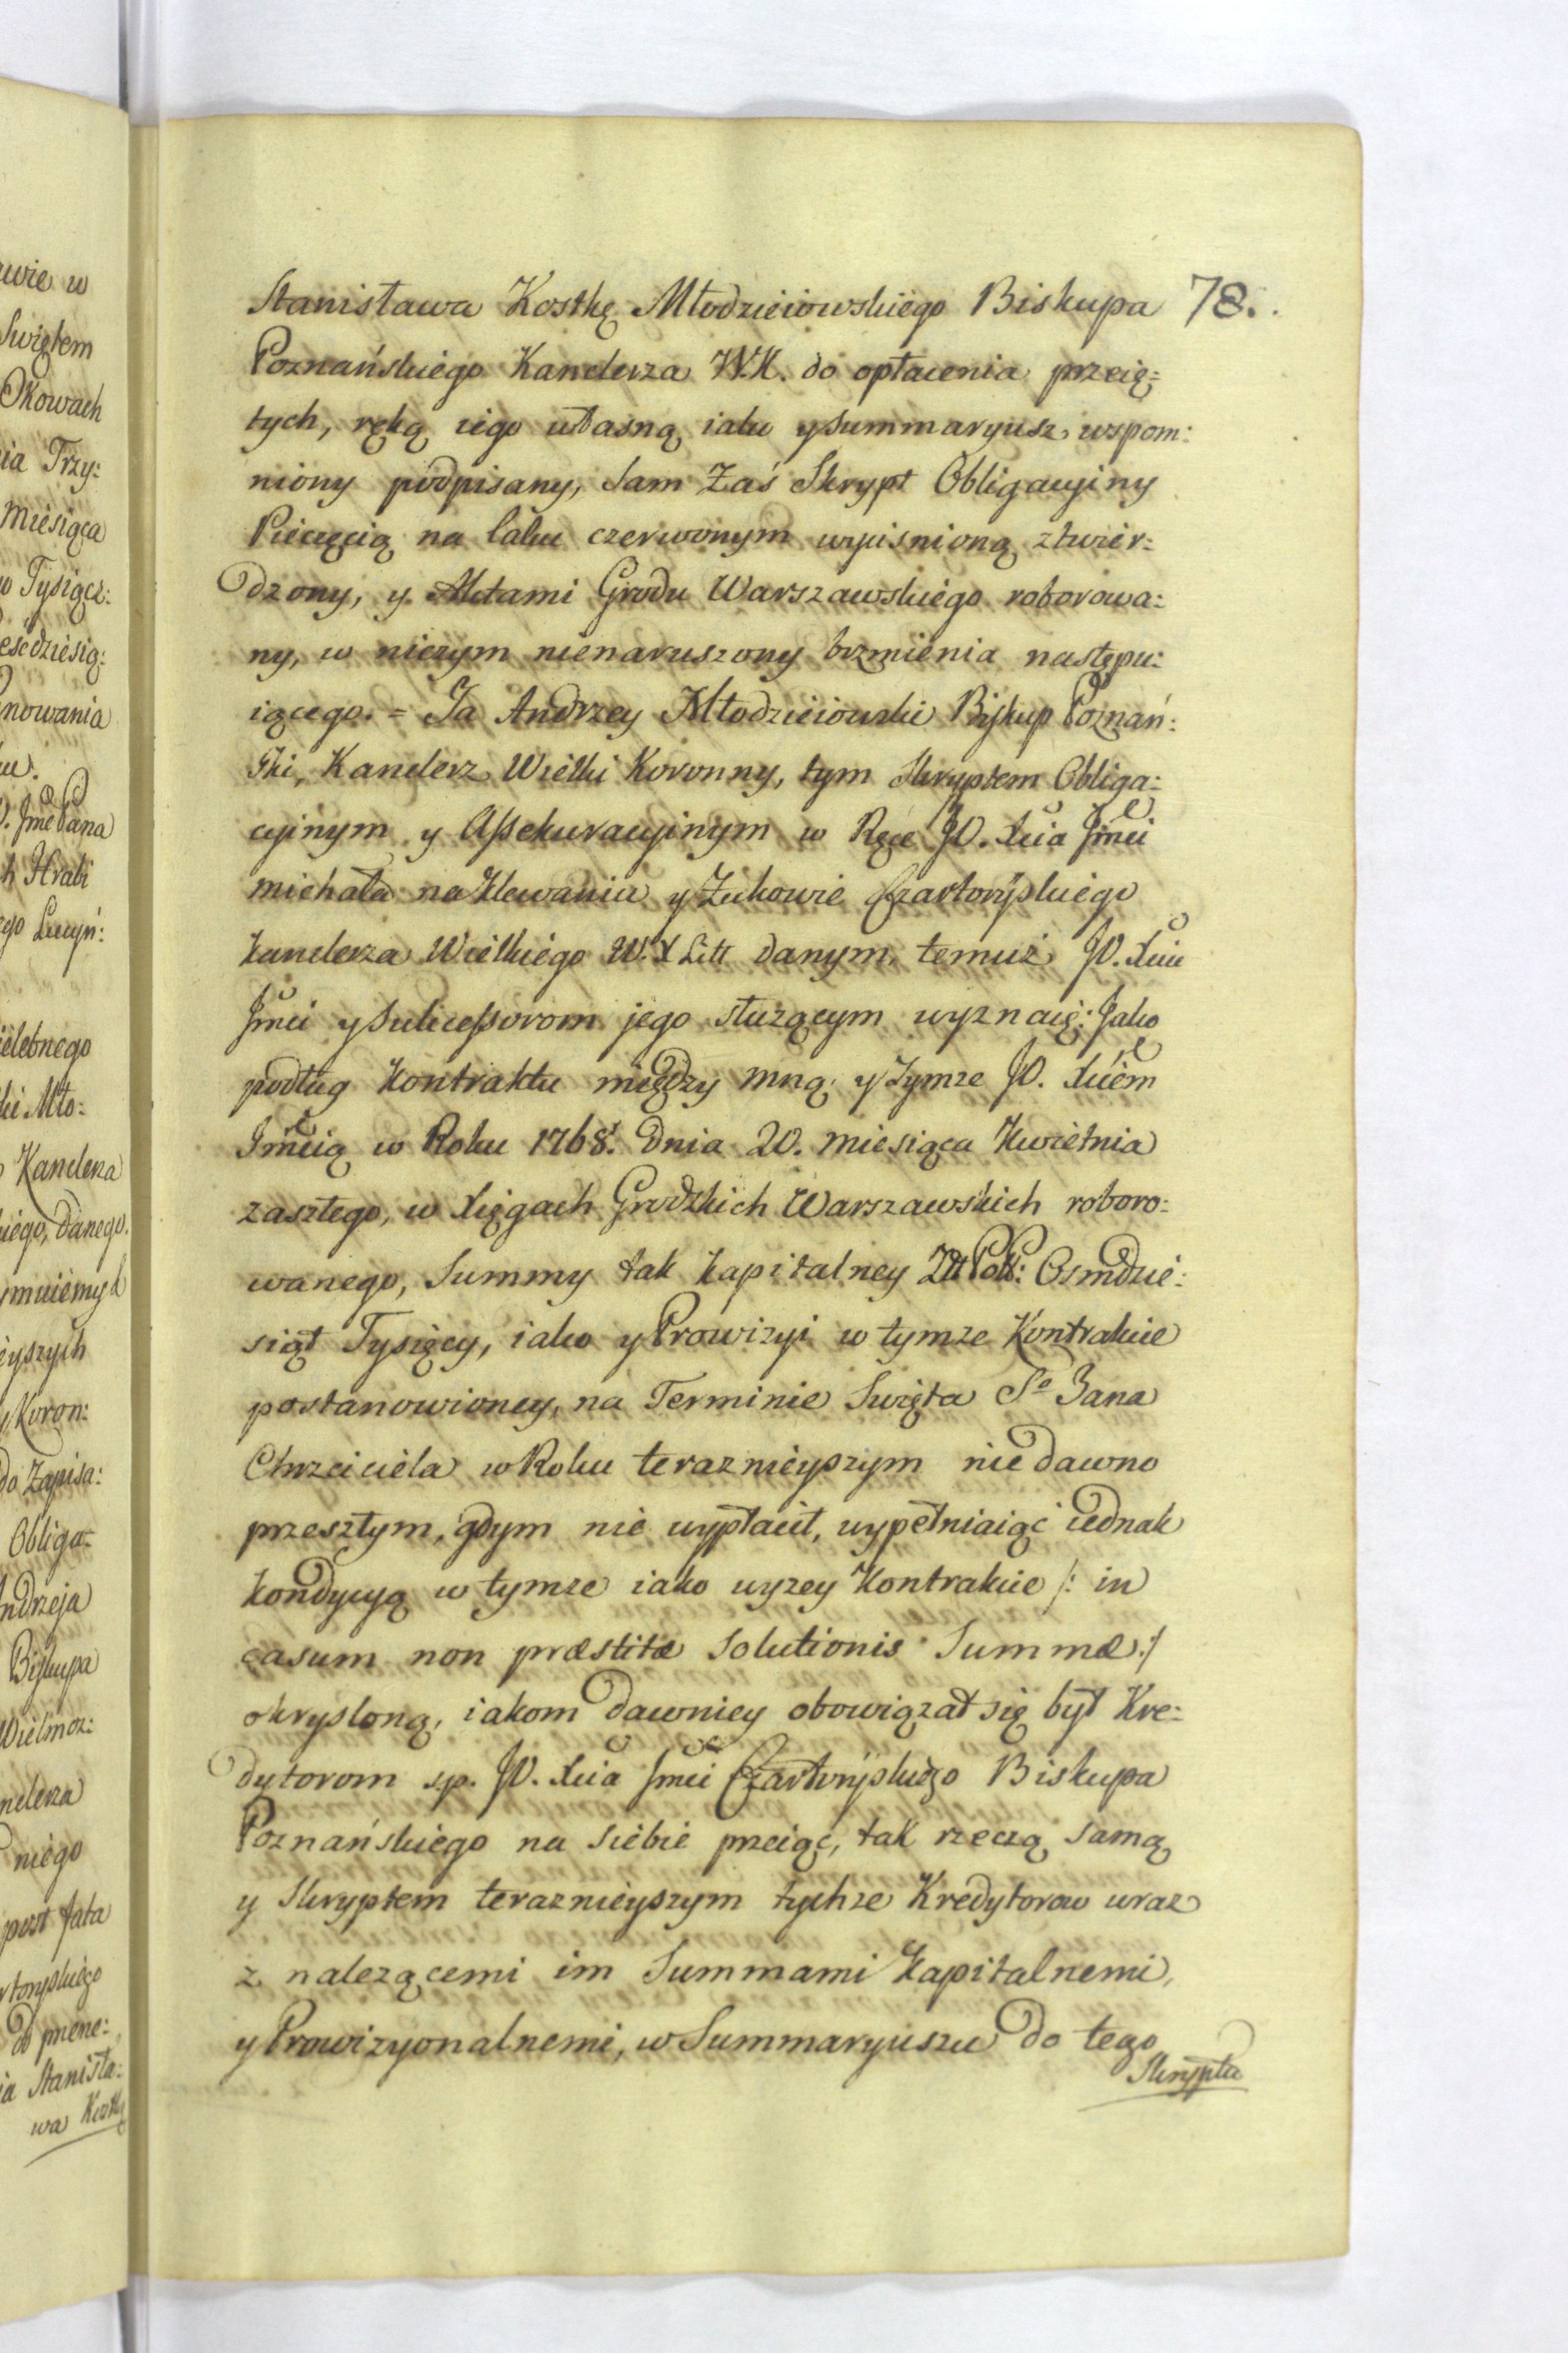 Stanisława Kostkę Młodzieiowskiego Biskupa 78.
Poznańskiego Kanclerza W.K. do opłacenia przeię:
tych, ręką iego własną iako y Summaryusz wspom:
niony podpisany, Sam Zaś Skrypt Obligacyiny
Pieczęcią na laku czerwonym wyciśnioną ztwier:
dzony, y Aktami Grodu Warszawskiego roborowa:
ny, w niczym nienaruszony brzmienia następu:
iącego. = Ja Andrzey Młodzieiowski Biskup Poznań:
ski, Kanclerz Wielki Koronny, tym Skryptem Obliga:
cyinym y Assekuracyinym w Ręce JO. Xcia Jmci
michała na Klewaniu y Zukowie Czartoryskiego
Kanclerza Wielkiego W.X Litt danym, temuż JO. Xciu
Jmci y Sukcessorom jego służącym wyznaię: Jako
podług Kontraktu między mną y Tymze JO. Xciem
Jmcią w Roku 1768. Dnia 20. miesiąca Kwietnia
zaszłego, w Xięgach Grodzkich Warszawskich roboro:
wanego, Summy tak Kapitalney Złł Poll: Osmdzie:
siąt Tysięcy, iako y Prowizyi w tymze Kontrakcie
postanowioney, na Terminie Swięta So Jana
Chrzciciela w Roku teraznieyszym nie dawno
przeszłym, gdym nie wypłacił, wypełniaiąc iednak
kondycyą w tymze iako wyzey Kontrakcie /: in
casum non præstitæ Solutionis Summæ :/
okrysloną, iakom dawniey obowiązał się był Kre:
dytorom sp. JO. Xcia Jmci Czartoryskiego Biskupa
Poznańskiego na siebie przeiąć, tak rzeczą samą
y Skryptem teraznieyszym tychze Kredytorow wraz
z nalezącemi im Summami Kapitalnemi,
y Prowizyonalnemi, w Summaryuszu do tego
Skryptu